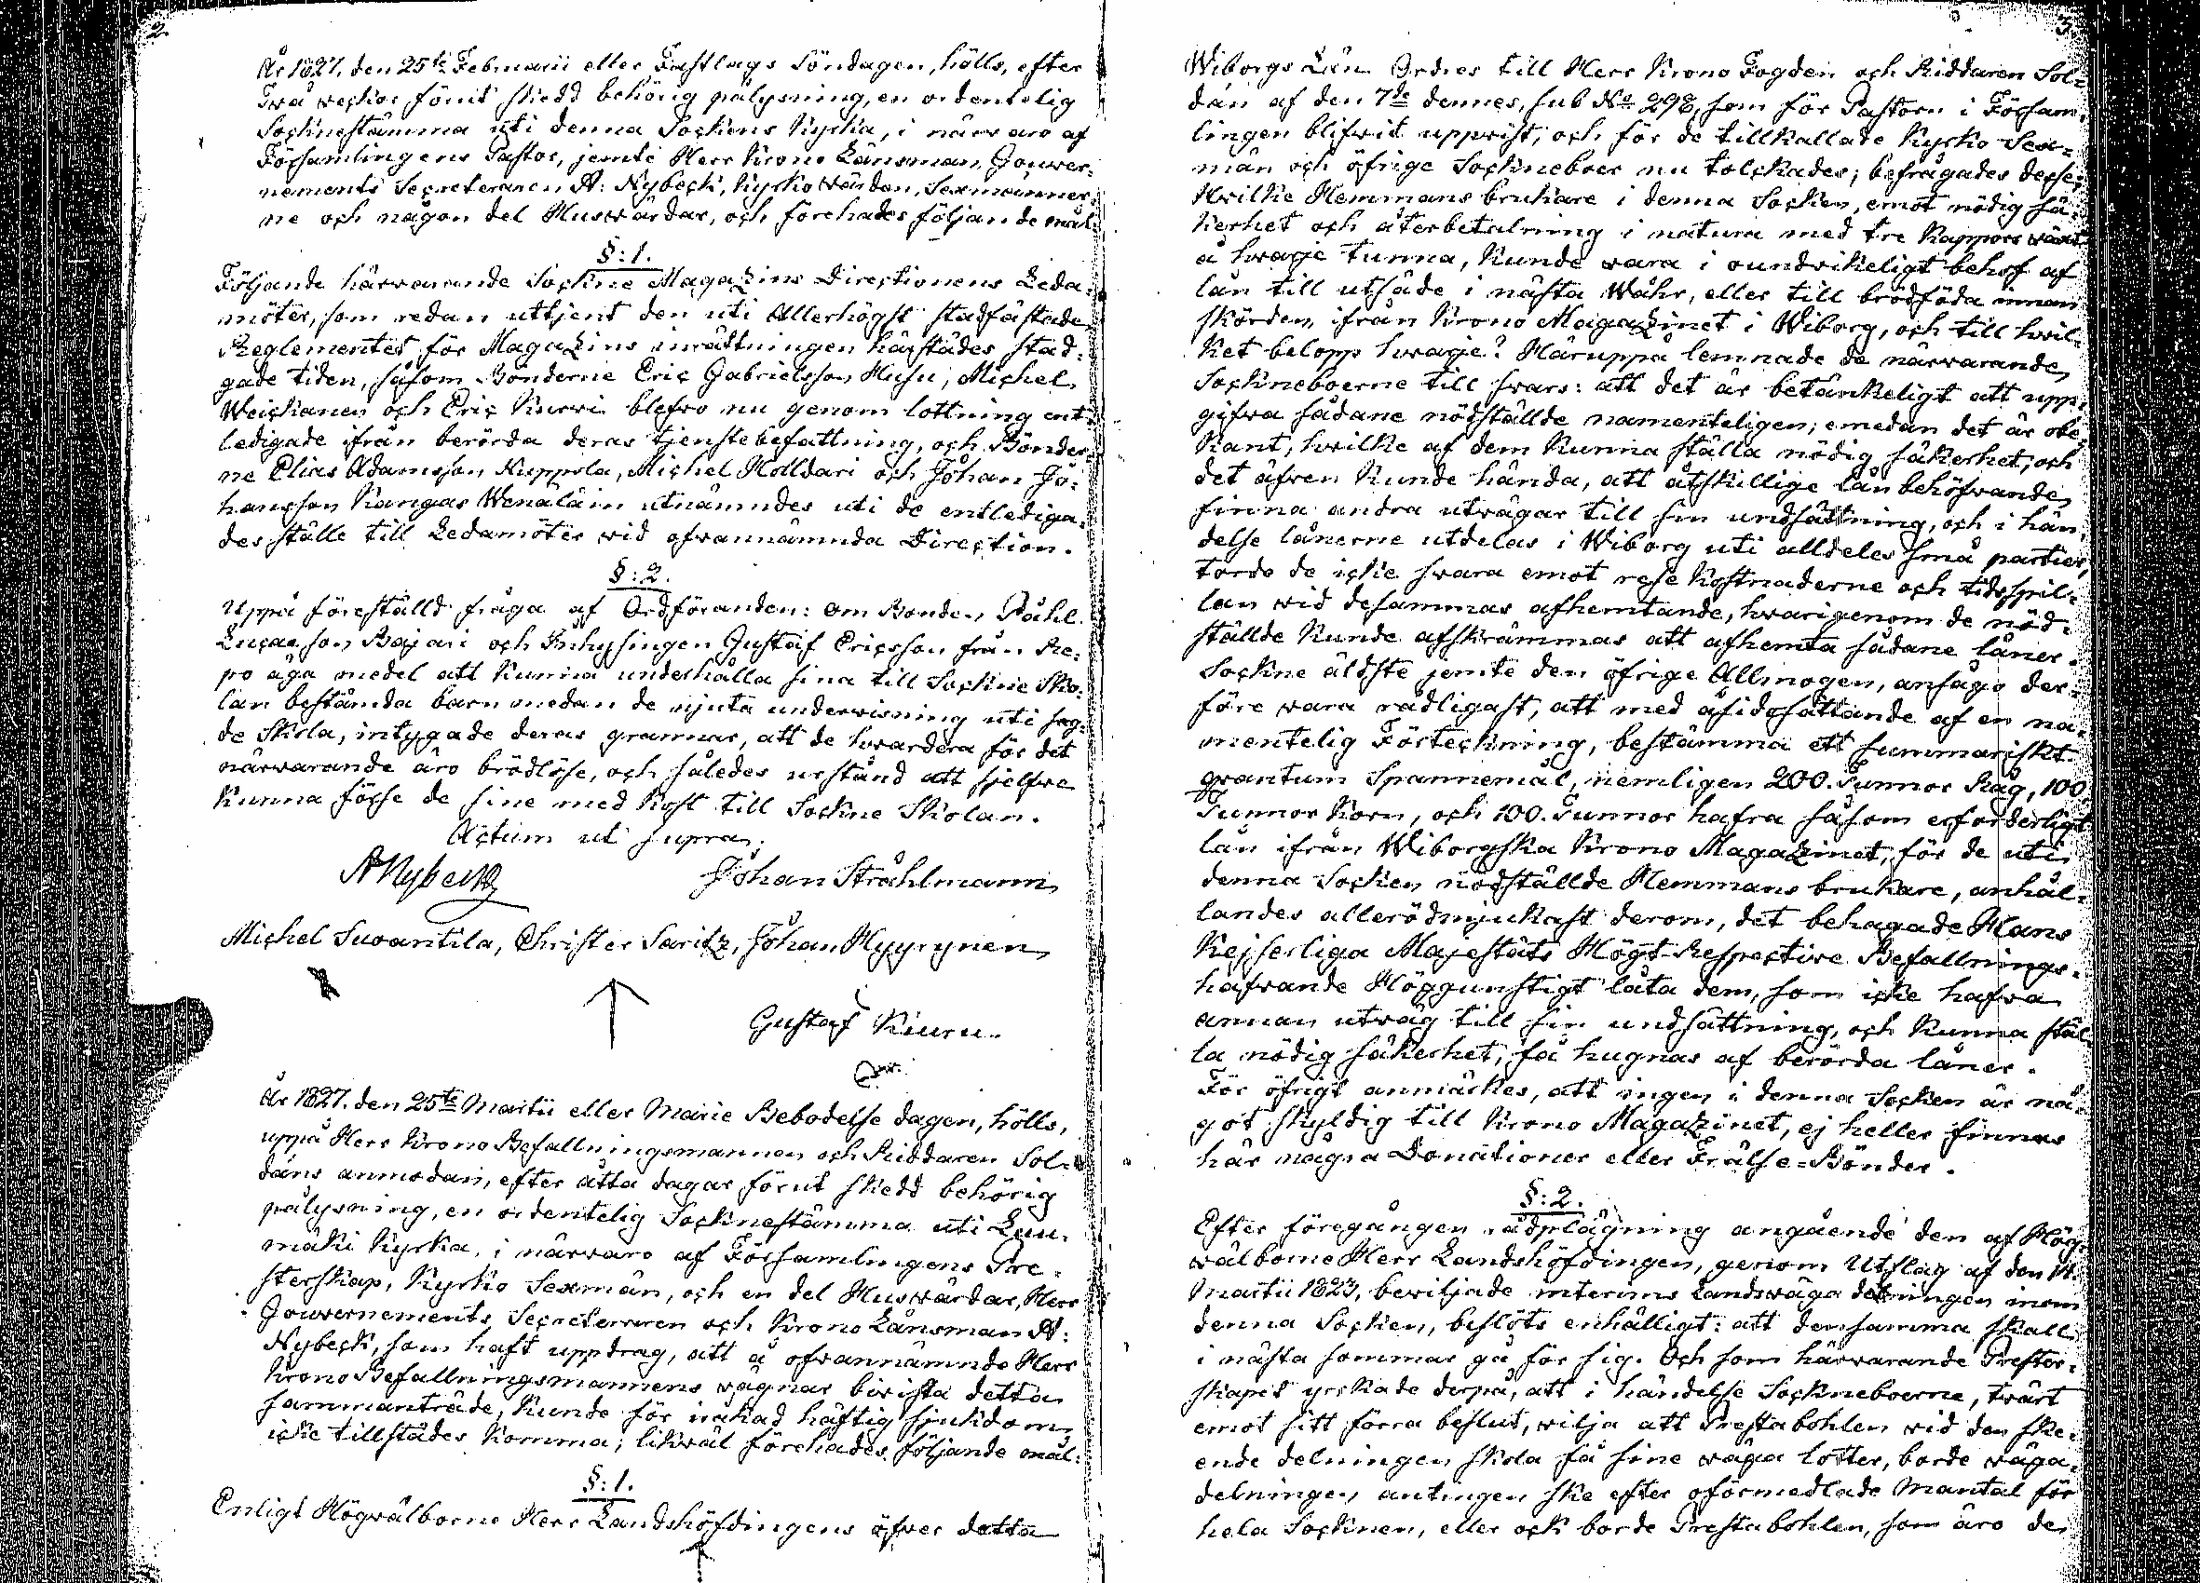 2.
År 1827. den 25te Februarii eller Fastlags Söndagen, hölls, efter
Två veckor förut skedd behörig pålysning, en ordentelig
Socknestämma uti denna Sockens Kyrka, i närvaro af
Församlingens Pastor, jemte Herr Krono Länsman, Gouver-
nements Secreteraren A: Nybeck, Kyrko värden, Sexmänner-
ne och någon del Husvärdar, och förehades följande mål:
§: 1.
Följande härvarande Sockne Magazins Directionens Leda-
möter, som redan uttjent den uti Allerhögst stadfästade
Reglementet för Magazins inrättningen härstädes stad-
gade tiden, såsom Bönderne Eric Gabrielsson Husu, Michel
Weickanen och Eric Kurvi blefvo nu genom lottning ent-
ledigade ifrån berörda deras tjenstebefattning, och Bönder-
ne Elias Adamsson Kuppola, Michel Holldari och Johan Jo-
hansson Kangas Wenäläin utnämndes uti de entlediga-
des ställe till Ledamöter vid ofvannämnda Direction.
§: 2.
Uppå föreställd fråga af Ordföranden: om Bonden Påhl
Lucasson Bajari och Inhysingen Gustaf Ericsson från Re-
po äga medel att kunna underhålla sina till Sockne Sko-
lan bestämda barn medan de njuta undervisning uti sag-
de Skola, intygade deras grannar, att de hvardera för det
närvarande äro brödlöse, och således urstånd att sjelfve
kunna förse de sine med kost till Sockne Skolan.
Actum ut supra,
A Nybeck Johan Stråhlmann
Michel Suoantila, Christer Saritz, Johan Hyyrynen
Gustaf Kiuru.
År 1827. den 25te Martii eller Marie Bebodelse dagen, hölls,
uppå Herr Krono Befallningsmannen och Riddaren Sol-
dáns anmodan, efter åtta dagar förut skedd behörig
pålysning, en ordentelig Socknestämma uti Luu-
mäki Kyrka, i närvaro af Församlingens Pre-
sterskap, Kyrko Sexmän, och en del Husvärdar, Herr
Gouvernements Secreteraren och Krono Länsman A:
Nybeck, som haft uppdrag, att å ofvannämnde Herr
Krono Befallningsmannens vägnar bivista detta
sammanträde, kunde för iråkad häftig sjukdom
icke tillstädes komma; likväl förehades följande mål:
§: 1.
Enligt Högvälborne Herr Landshöfdingens öfver detta
3.
Wiborgs Län Ordres till Herr Krono Fogden och Riddaren Sol-
dán af den 7de dennes, sub No 298, som för Pastorn i Försam-
lingen blifvit uppvist, och för de tillkallade Kyrko Sex-
män och öfrige Sockneboer nu tolckades; befrågades desse:
Hvilke Hemmans brukare i denna Socken, emot nödig sä-
kerhet och återbetalning i natura med tre Kappors växt
å hvarje Tunna, kunde vara i oundvikeligt behof af
lån till utsäde i nästa Wåhr, eller till brödföda innan
skörden, ifrån Krono Magazinet i Wiborg, och till hvil-
ket belopp hvarje? Häruppå lemnade de närvarande
Sockneboerne till svars: att det är betänkeligt att upp-
gifva sådane nödställde namenteligen; emedan det är obe-
kant, hvilke af dem kunna ställa nödig säkerhet; och
det äfven kunde hända, att åtskillige lån behöfvande
finna andra utvägar till sin undsättning, och i hän-
delse lånerne utdelas i Wiborg uti alldeles små partier,
torde de icke svara emot rese kostnaderne och tidsspil-
lan vid desammas afhemtande, hvarigenom de nöd-
ställde kunde afskrämmas att afhemta sådane låner.
Sockne äldste jemte den öfrige Allmogen, ansågo der-
före vara rådligast, att med åsidosättande af en na-
mentelig Förteckning, bestämma ett summariskt
qvantum Spannemål, nemligen 200. Tunnor Råg, 100
Tunnor Korn, och 100. Tunnor hafra såsom erforderligt
lån ifrån Wiborgska Krono Magazinet, för de uti
denna Socken nödställde Hemmans brukare, anhål-
landes allerödmjukast derom, det behagade Hans
Kejserliga Majestäts Högt Respective Befallnings-
hafvande Höggunstigt låta dem, som icke hafva
annan utväg till sin undsättning, och kunna stäl-
la nödig säkerhet, få hugnas af berörda låner.
För öfrigt anmärkes, att ingen i denna Socken är nå-
got skyldig till Krono Magazinet, ej heller finnas
här några Donationer eller Frälse-Bönder.
§: 2.
Efter föregången rådplägning angående den af Hög-
välborne Herr Landshöfdingen, genom Utslag af den 14
Martii 1823, beviljade interims Landsväga delningen inom
denna Socken, beslöts enhälligt: att densamma skall
i nästa sommar gå för sig. Och som härvarande Prester-
skapet yrckade derpå, att i händelse Sockneboerne, tvärt
emot sitt förra beslut, vilja att Prestabohlen vid den ske-
ende delningen skola få sine väga lotter, borde väga-
delningen antingen ske efter oförmedlade Mantal för
hela Socknen, eller ock borde Prestabohlen, som äro de